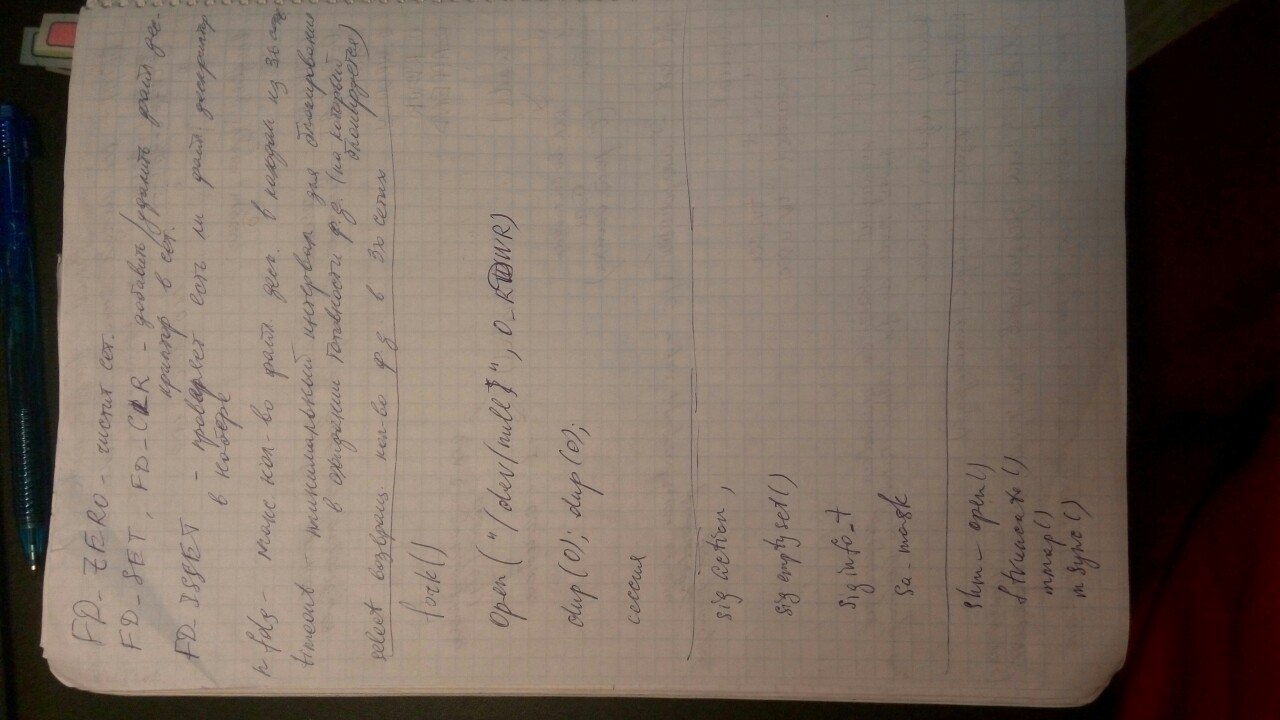 FD_ZERO - чистит сет.
FD_SET, FD_CLR - добавить/удалить файл дес-
криптор в сет.
FD_ISSET - проверяет есть ли файл дескриптор
в наборе
n fds - макс кол-во файл деск. в каждом из 3х
timeout - минимальный интервал для блокирования
в ожидании готовности ф.д. (на который
блокируется)
select возвращ. кол-во ф д в 3х сетах
fork()
open("/dev/null", O_RDWR)
dup(0); dup(0);
сессия
sigaction,
sigemptyset()
siginfo_t
sa-mask
shm-open()
ftruncate()
mmap()
msync()